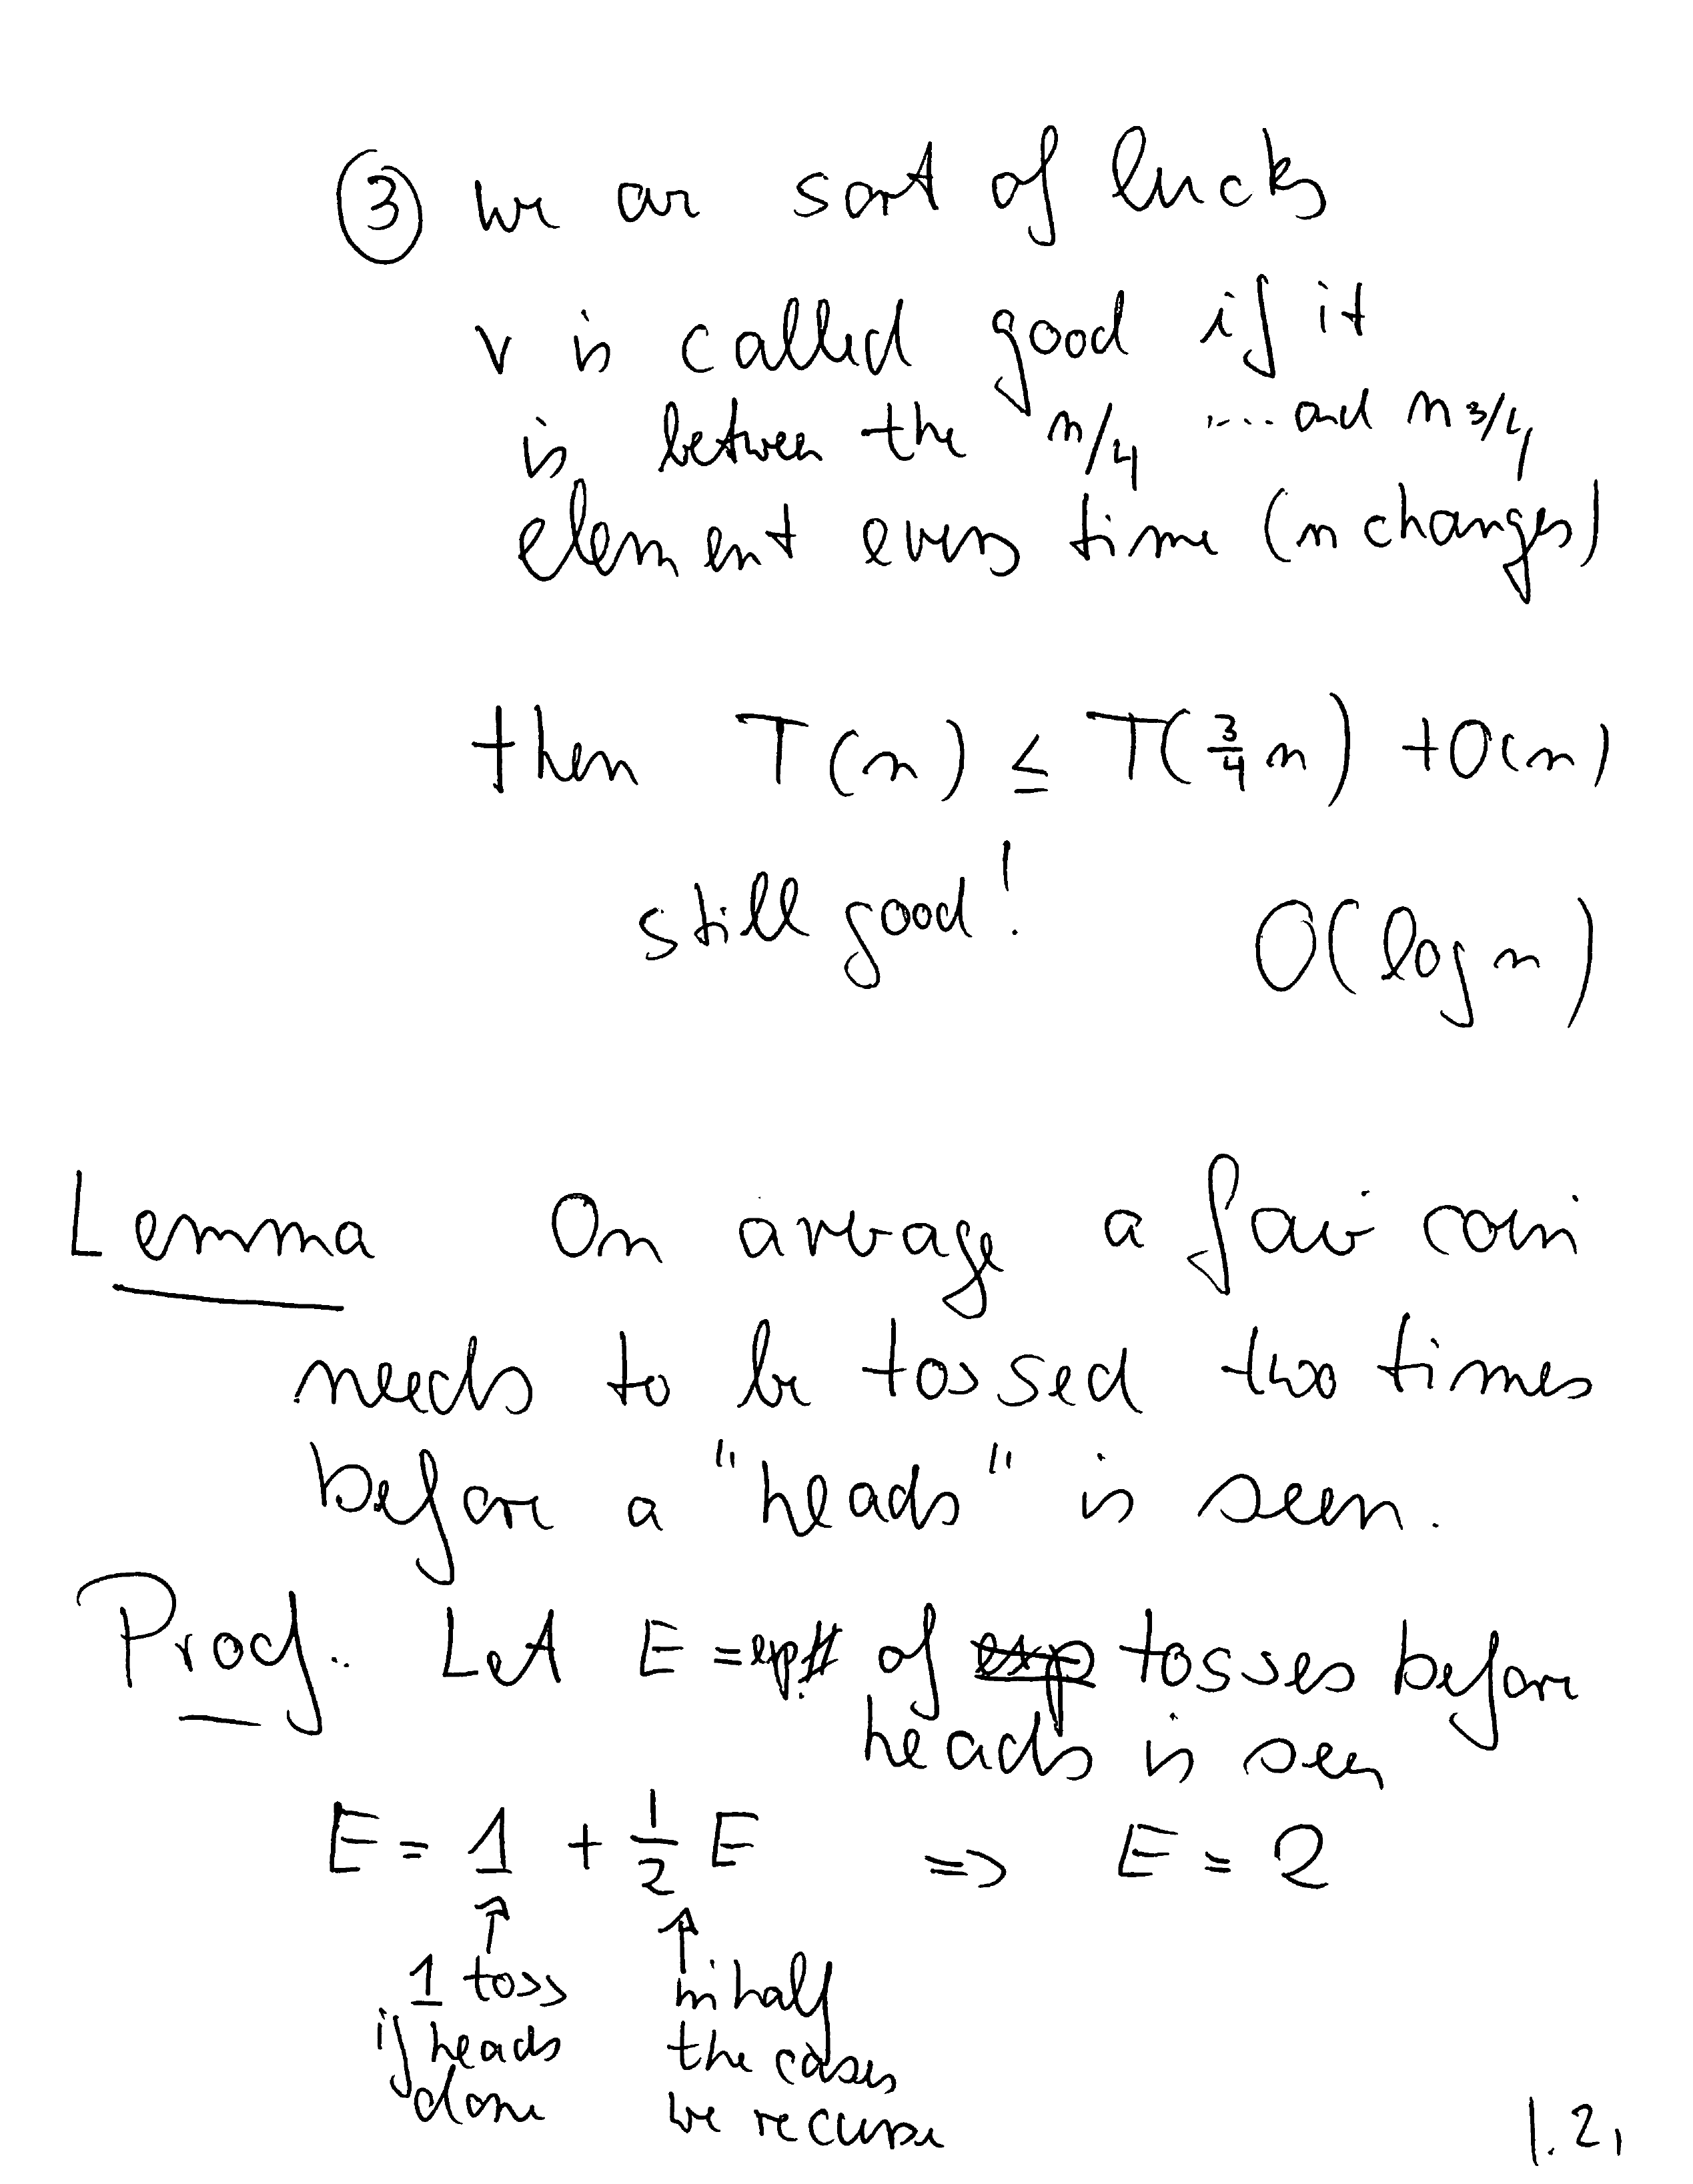 ③ we are sort of lucky
v is called good if it
is between the n/4 .... and n 3/4
element every time (n changes)
then T(n) ≤ T(3/4 n) + O(n)
still good! O(log n)
Lemma On average a fair coin
needs to be tossed two times
before a "heads" is seen.
Proof. Let E = exp.# of exp tosses before
heads is seen
E = 1 + 1/2 E => E = 2
↑ ↑
1 toss in half
if heads the cases
done we recurse
1.21